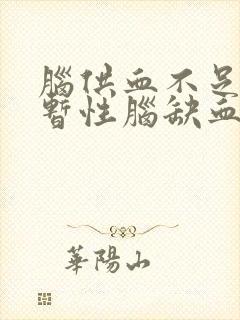 腦供血不足
暫性腦缺血
華陽山